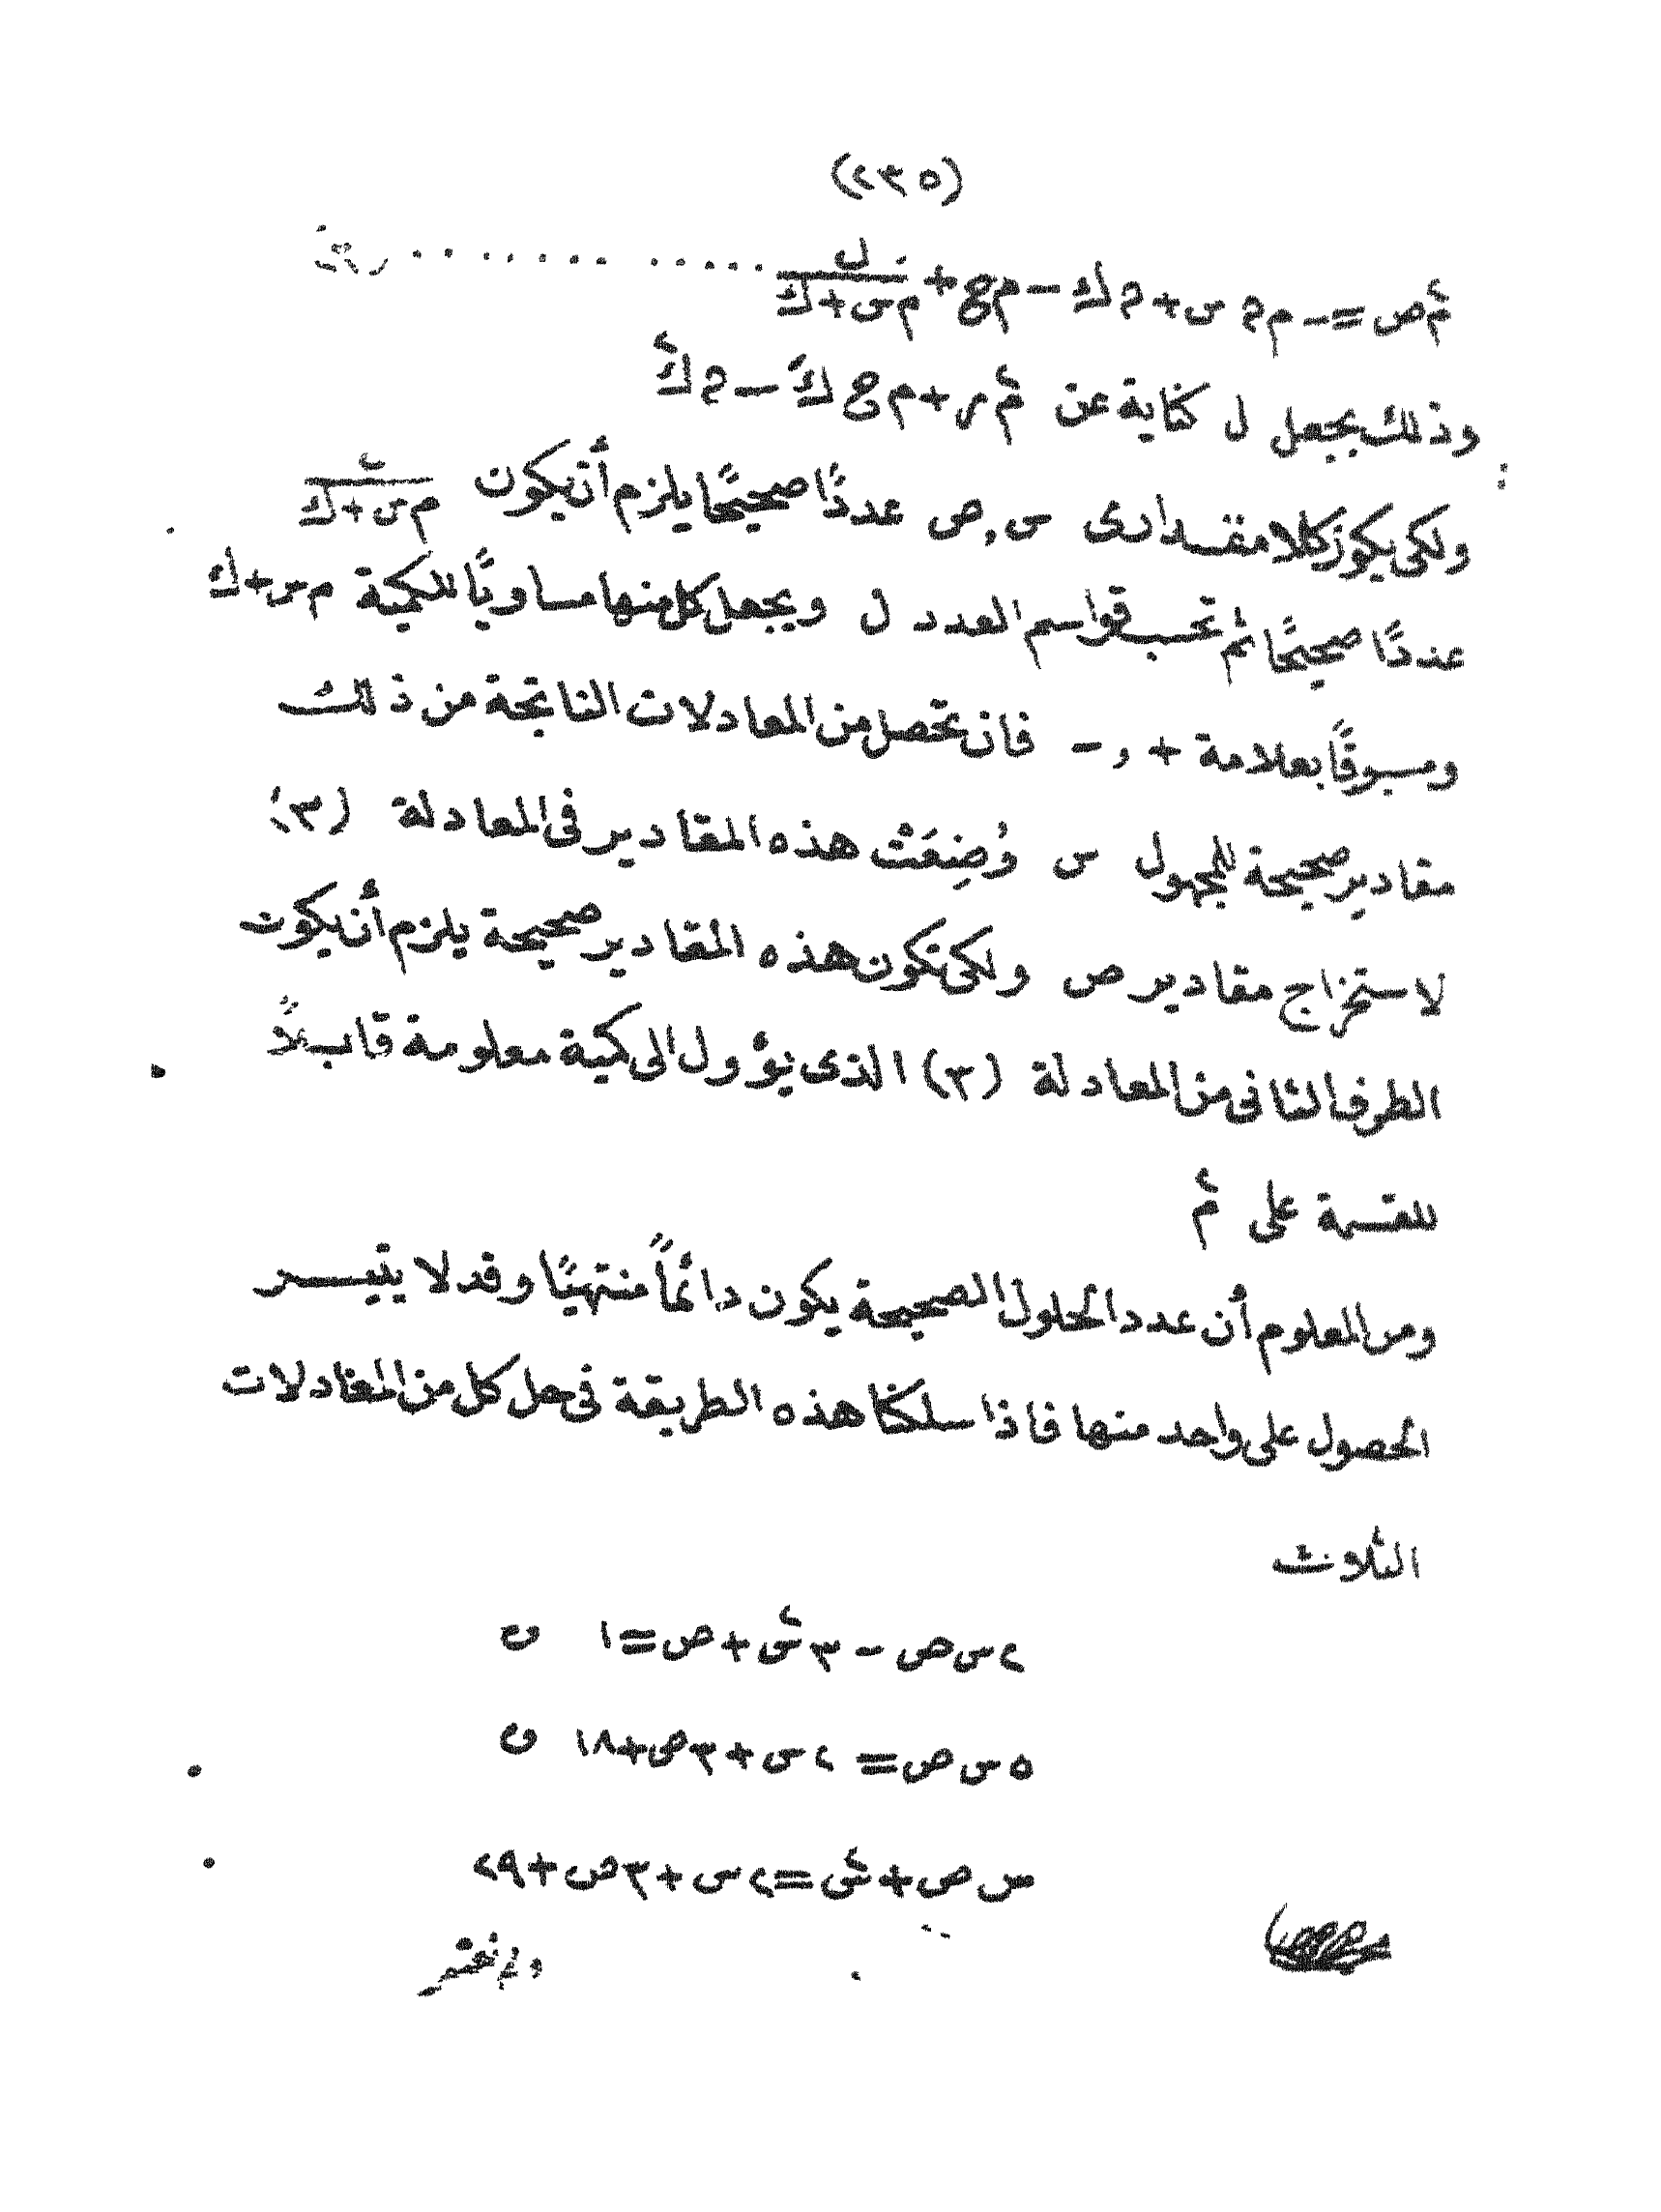 (٢٣٥)
م٢ص = - م ح س + ح ك - م ج + ل / م س + ك ............ (٣)
وذلك بجعل ل كناية عن م٢ ر + م ج ك - ح ك٢
ولكى يكون كلا مقدارى س , ص عددًا صحيحًا يلزم أن يكون ل / م س + ك
عددًا صحيحًا ثم تحسب قواسم العدد ل ويجعل كل منها مساويًا للكمية م س + ك
ومسبوقًا بعلامة + , - فان تحصل من المعادلات الناتجة من ذلك
مقادير صحيحة للمجهول س وُضِعَتْ هذه المقادير فى المعادلة (٣)
لاستخراج مقادير ص ولكى تكون هذه المقادير صحيحة يلزم أن يكون
الطرف الثانى من المعادلة (٣) الذى يؤول الى كمية معلومة قابلاً
للقسمة على م٢
ومن المعلوم أن عدد الحلول الصحيحة يكون دائمًا منتهيًا وقد لا يتيسر
الحصول على واحد منها فاذا سلكنا هذه الطريقة فى حل كل من المعادلات
الثلاث
٢ س ص - ٣ س٢ + ص = ١ ن
٥ س ص = ٢ س + ٣ ص + ١٨ ن
س ص + س٢ = ٢ س + ٣ ص + ٢٩